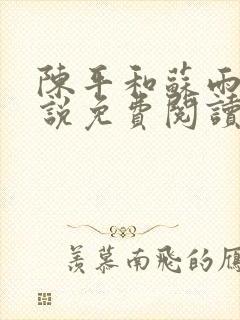 陳平和蘇雨
說免費閱讀
羨慕南飛的雁